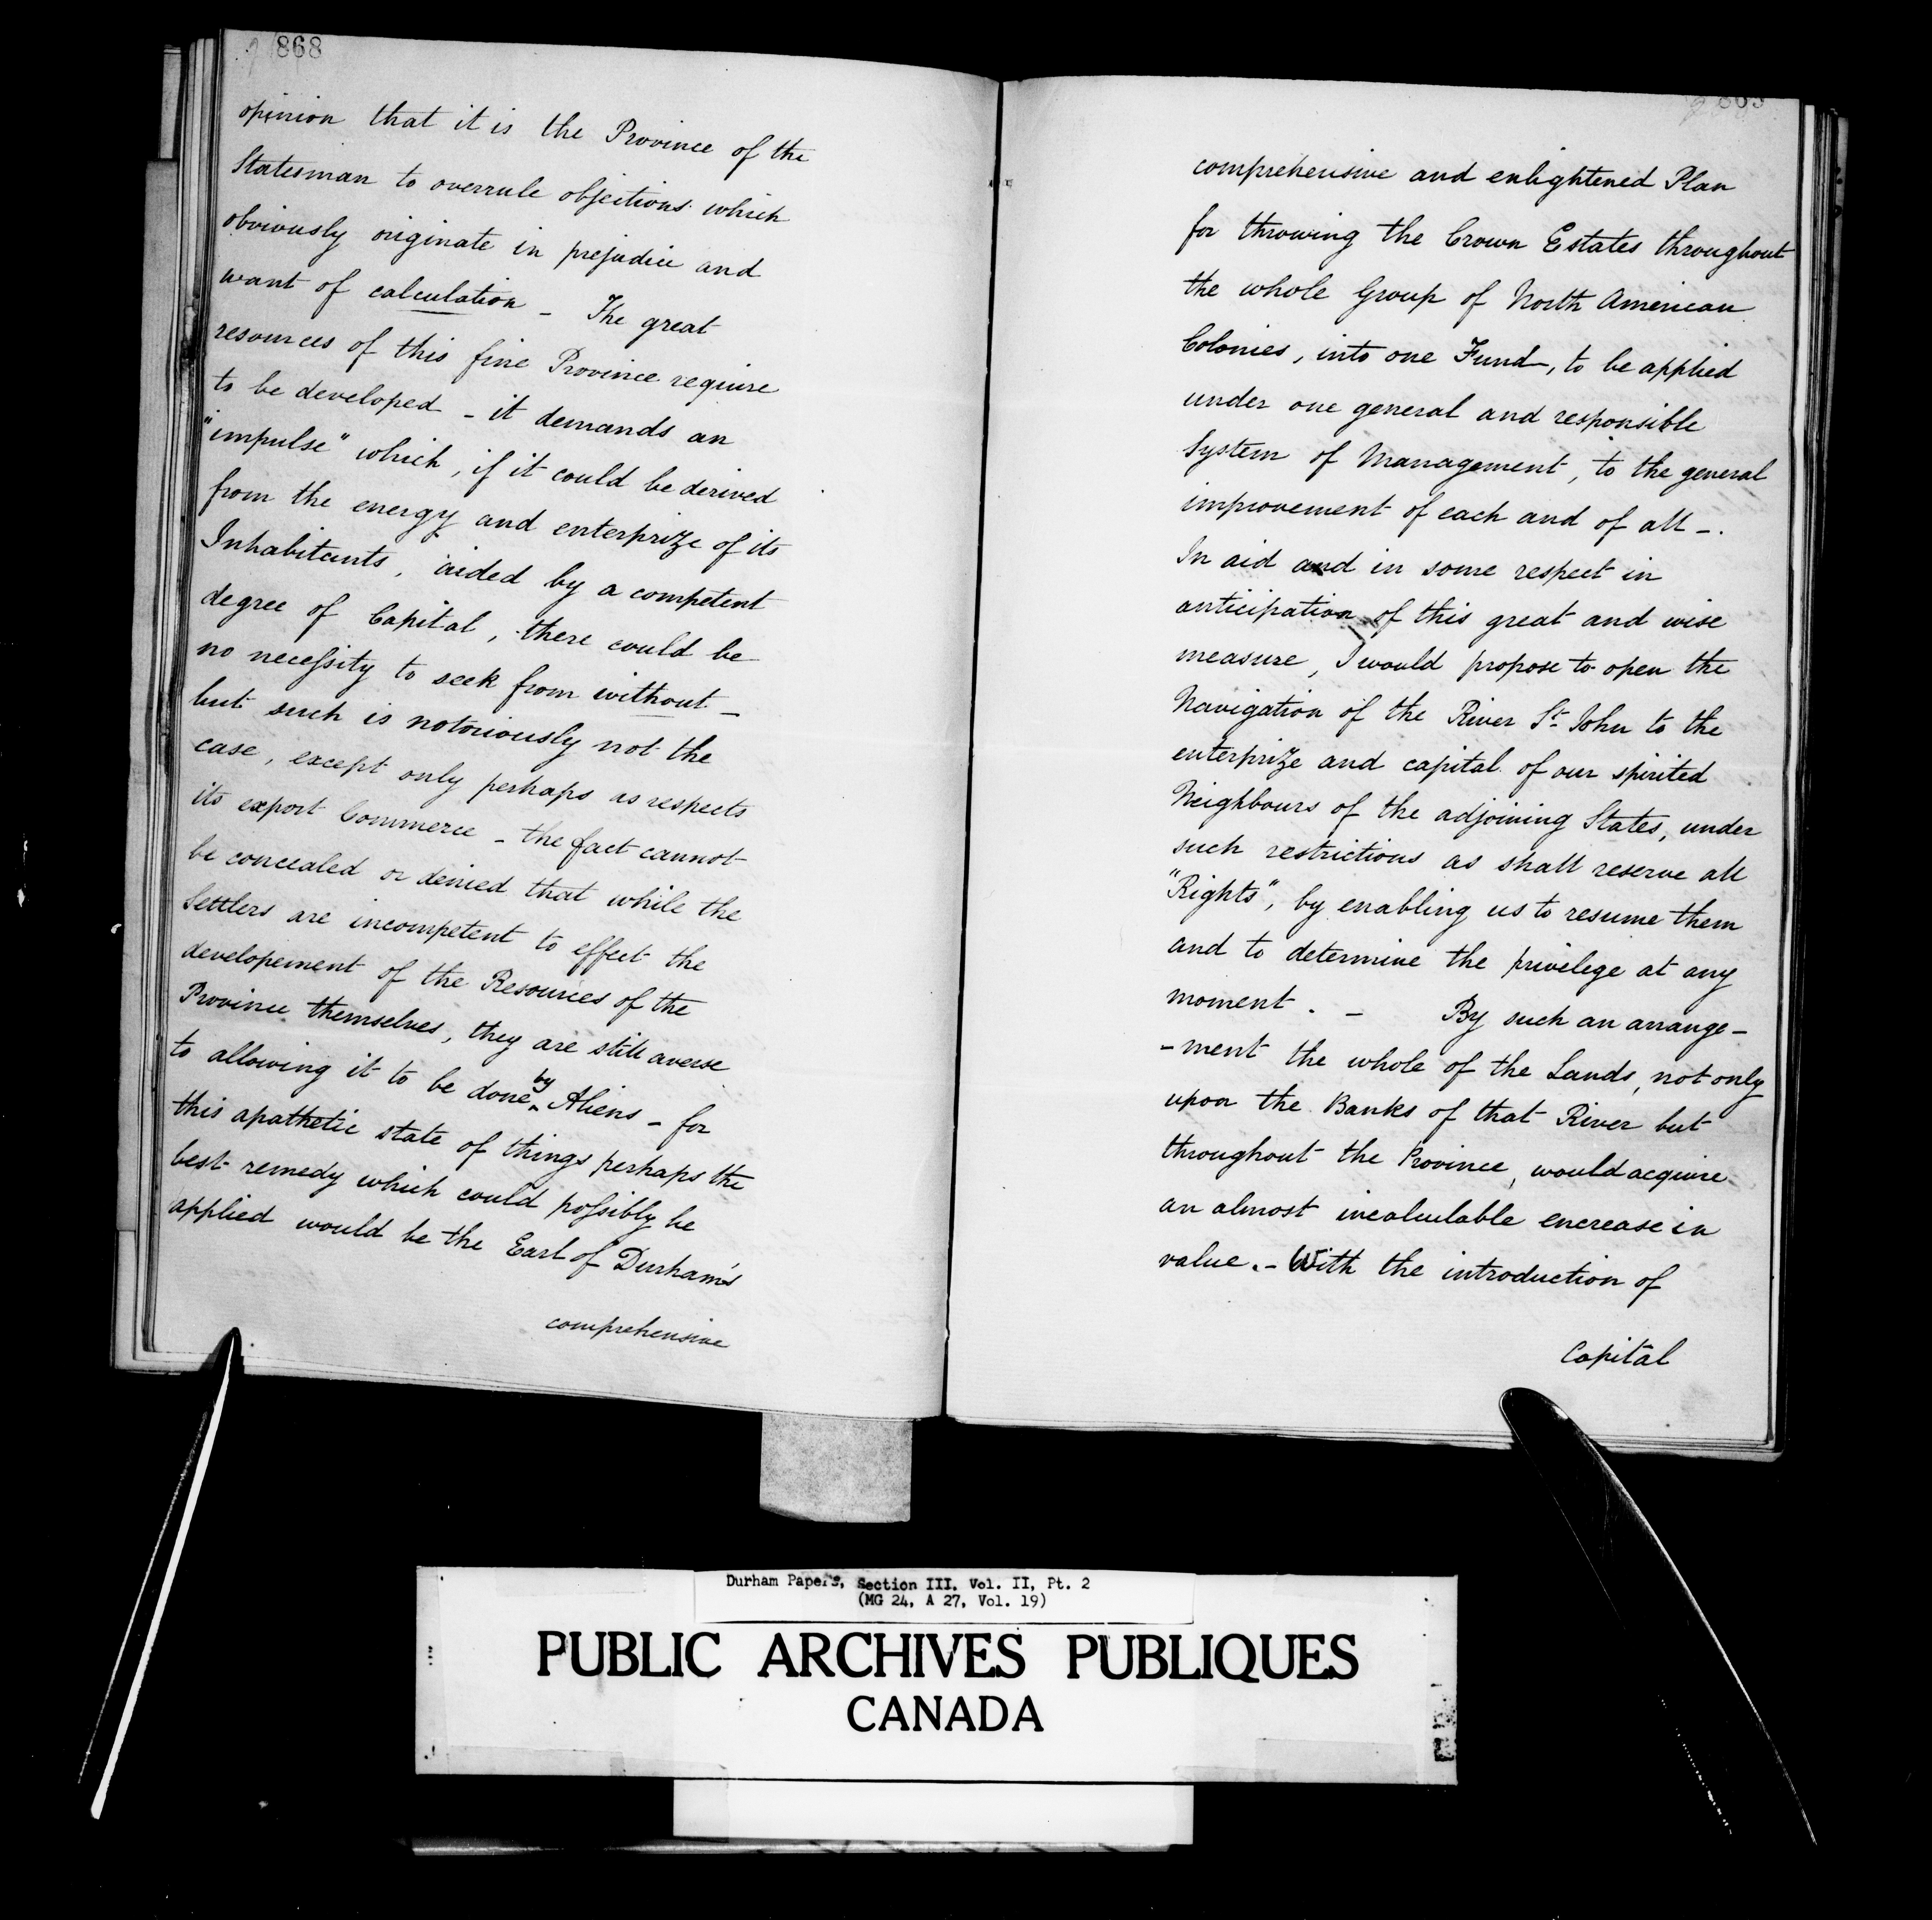 868
opinion that it is the Province of the
Statesman to overrule objections which
obviously originate in prejudice and
want of calculation - The great
resources of this fine Province require
to be developed - it demands an
"impulse" which, if it could be derived
from the energy and enterprize of its
Inhabitants, aided by a competent
degree of Capital, there could be
no necessity to seek from without -
but such is notoriously not the
case, except only perhaps as respects
its export Commerce - the fact cannot
be concealed or denied that while the
Settlers are incompetent to effect the
developement of the Resources of the
Province themselves, they are still averse
to allowing it to be done by Aliens - for
this apathetic state of things perhaps the
best remedy which could possibly be
applied would be the Earl of Durham's
comprehensive
comprehensive and enlightened Plan
for throwing the Crown Estates throughout
the whole Group of North American
Colonies, into one Fund, to be applied
under one general and responsible
System of Management, to the general
improvement of each and of all -.
In aid and in some respect in
anticipation of this great and wise
measure, I would propose to open the
Navigation of the River St. John to the
enterprize and capital of our spirited
Neighbours of the adjoining States, under
such restrictions as shall reserve all
"Rights", by enabling us to resume them
and to determine the privilege at any
moment. - By such an arrange-
-ment the whole of the Lands, not only
upon the Banks of that River but
throughout the Province, would acquire
an almost incalculable encrease in
value. - With the introduction of
Capital
Durham Papers, Section III. Vol. II, Pt. 2
(MG 24, A 27, Vol. 19)
PUBLIC ARCHIVES PUBLIQUES
CANADA